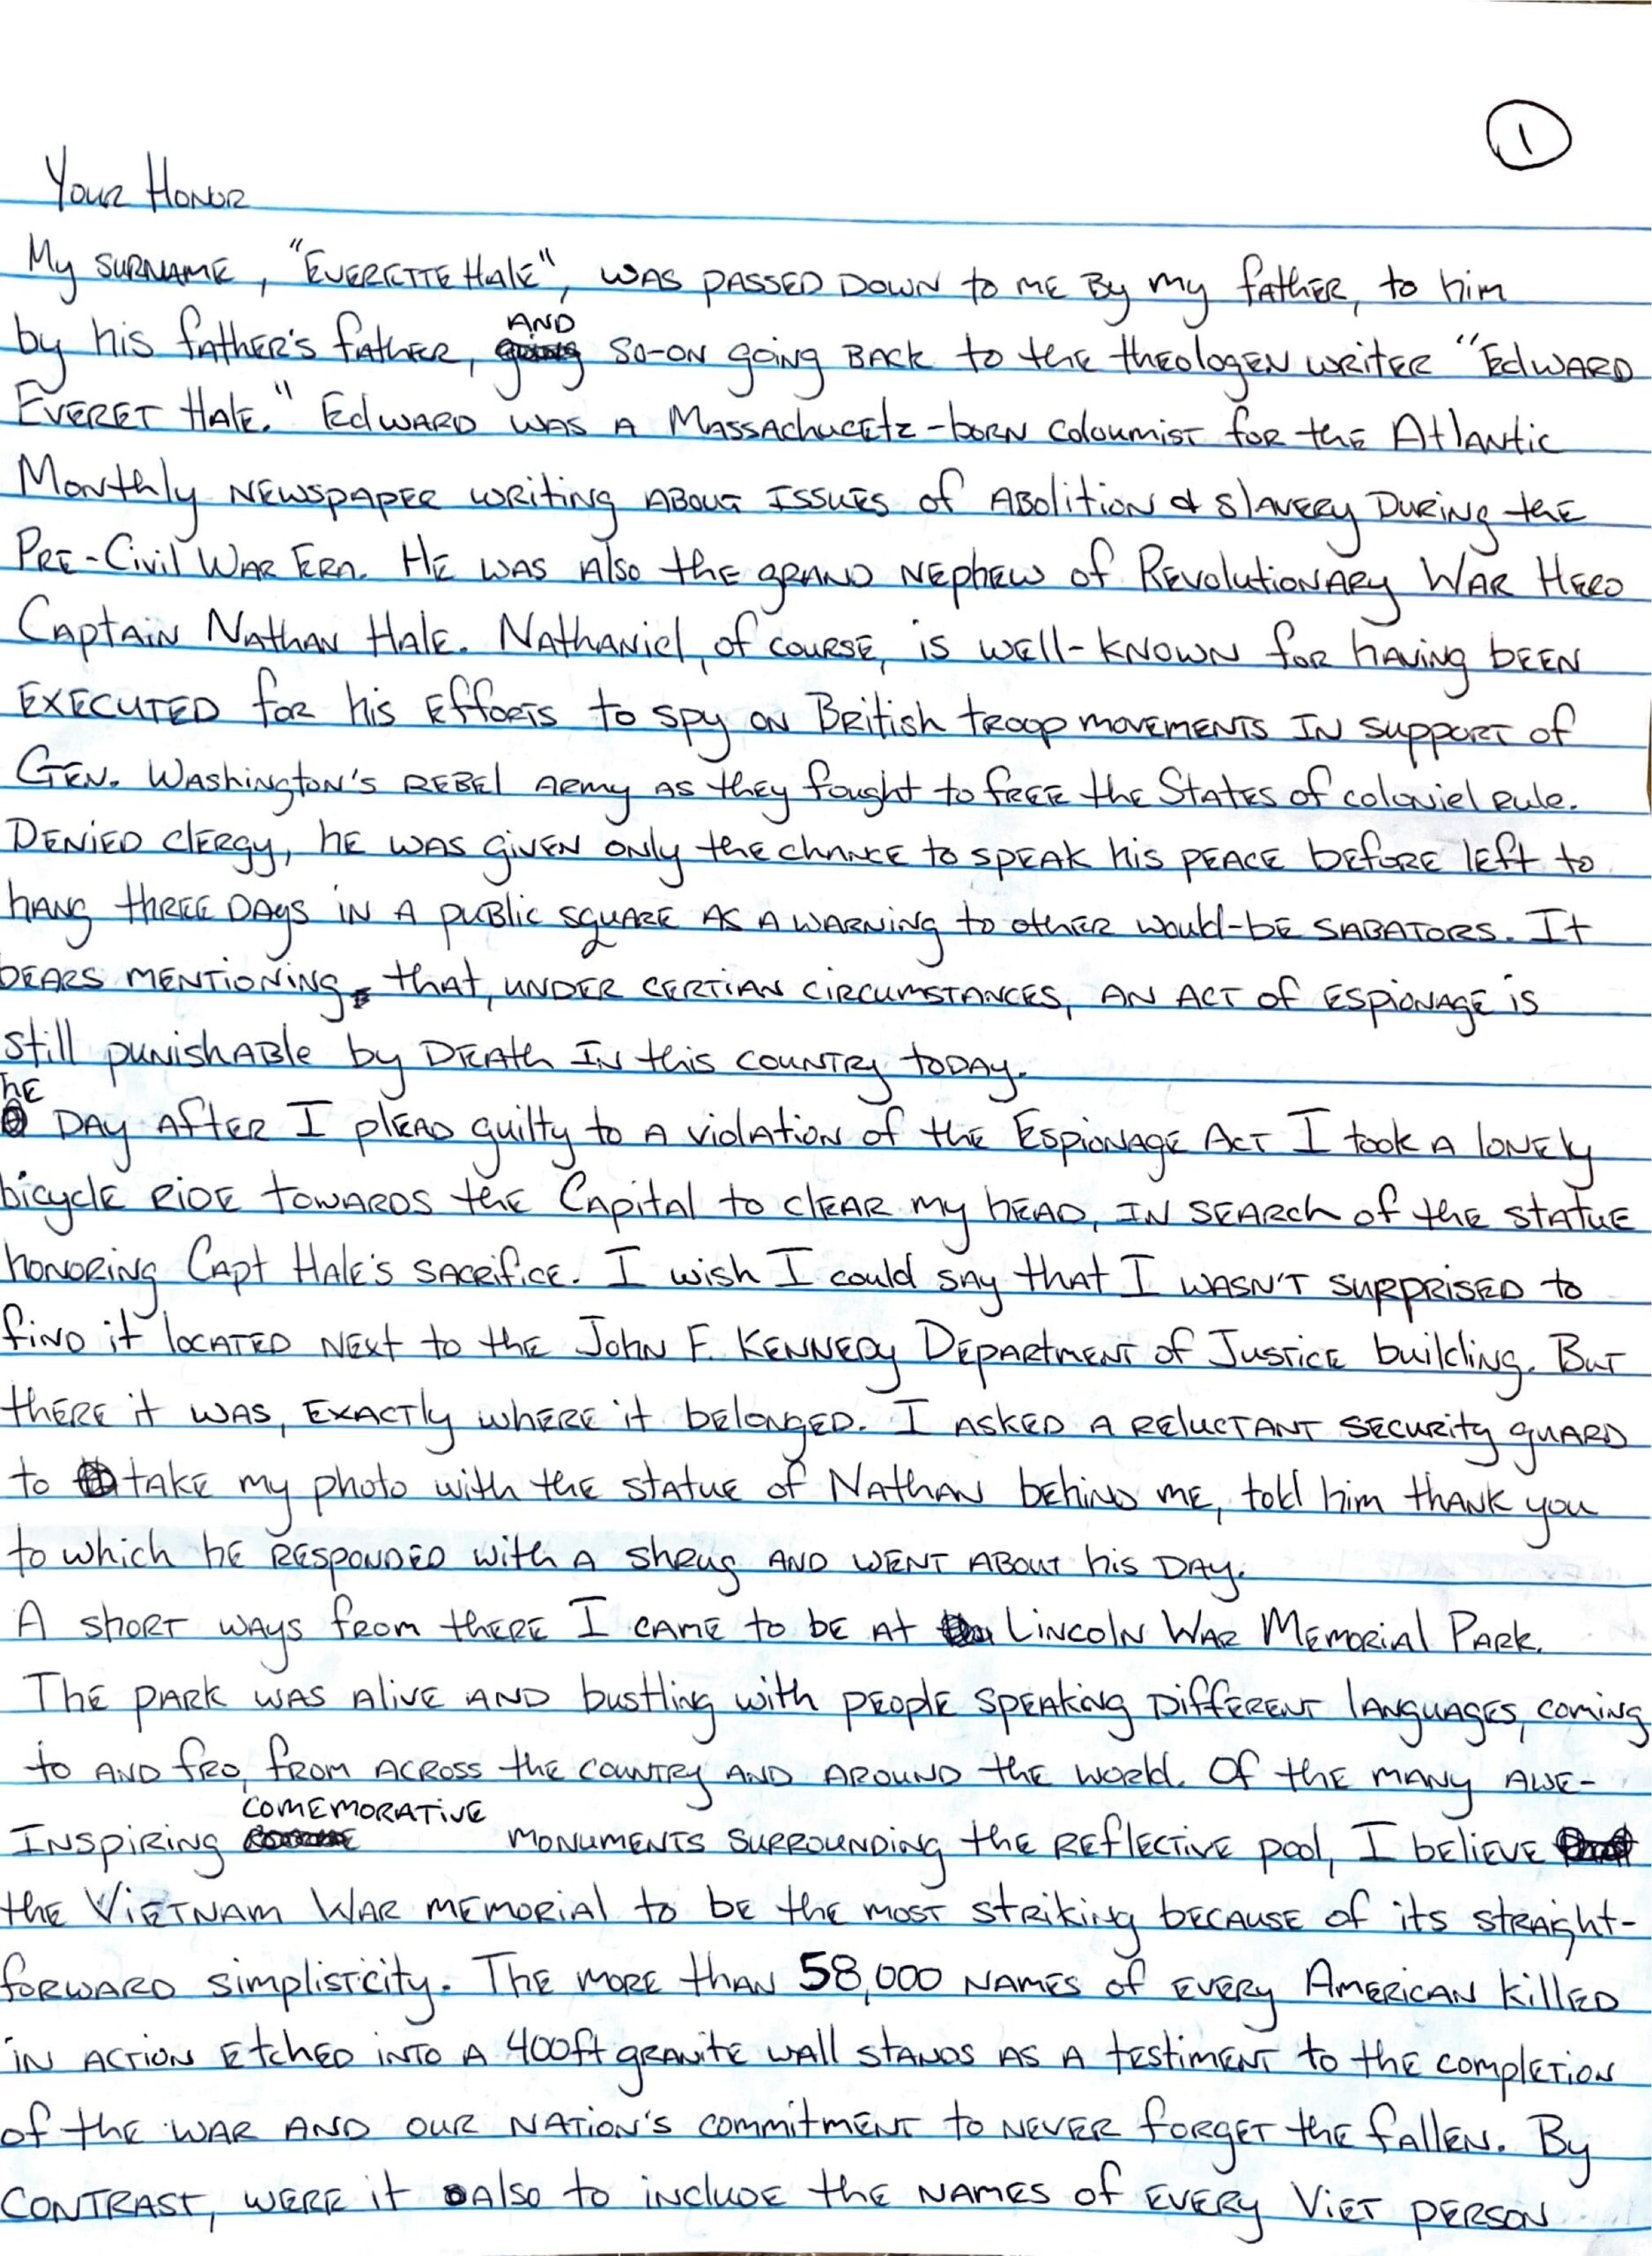 1
Your Honor
My surname, "Everette Hale", was passed down to me by my father, to him
by his father's father, and so-on going back to the theologen writer "Edward
Everet Hale." Edward was a Massachucetz-born coloumist for the Atlantic
Monthly newspaper writing about issues of abolition & slavery during the
Pre-Civil War Era. He was also the grand nephew of Revolutionary War Hero
Captain Nathan Hale. Nathaniel, of course, is well-known for having been
executed for his efforts to spy on British troop movements in support of
Gen. Washington's rebel army as they fought to free the States of coloniel rule.
Denied clergy, he was given only the chance to speak his peace before left to
hang three days in a public square as a warning to other would-be sabators. It
bears mentioning that, under certian circumstances, an act of espionage is
still punishable by death in this country today.
he day after I plead guilty to a violation of the Espionage Act I took a lonely
bicycle ride towards the Capital to clear my head, in search of the statue
honoring Capt Hale's sacrifice. I wish I could say that I wasn't surpprised to
find it located next to the John F. Kennedy Department of Justice building. But
there it was, exactly where it belonged. I asked a reluctant security guard
to take my photo with the statue of Nathan behind me, told him thank you
to which he responded with a shrug and went about his day.
A short ways from there I came to be at Lincoln War Memorial Park.
The park was alive and bustling with people speaking different languages, coming
to and fro, from across the country and around the world. Of the many awe-
inspiring comemorative monuments surrounding the reflective pool, I believe
the Vietnam War memorial to be the most striking because of its straight-
forward simplisticity. The more than 58,000 names of every American killed
in action etched into a 400ft granite wall stands as a testiment to the completion
of the war and our nation's commitment to never forget the fallen. By
contrast, were it also to include the names of every Viet person